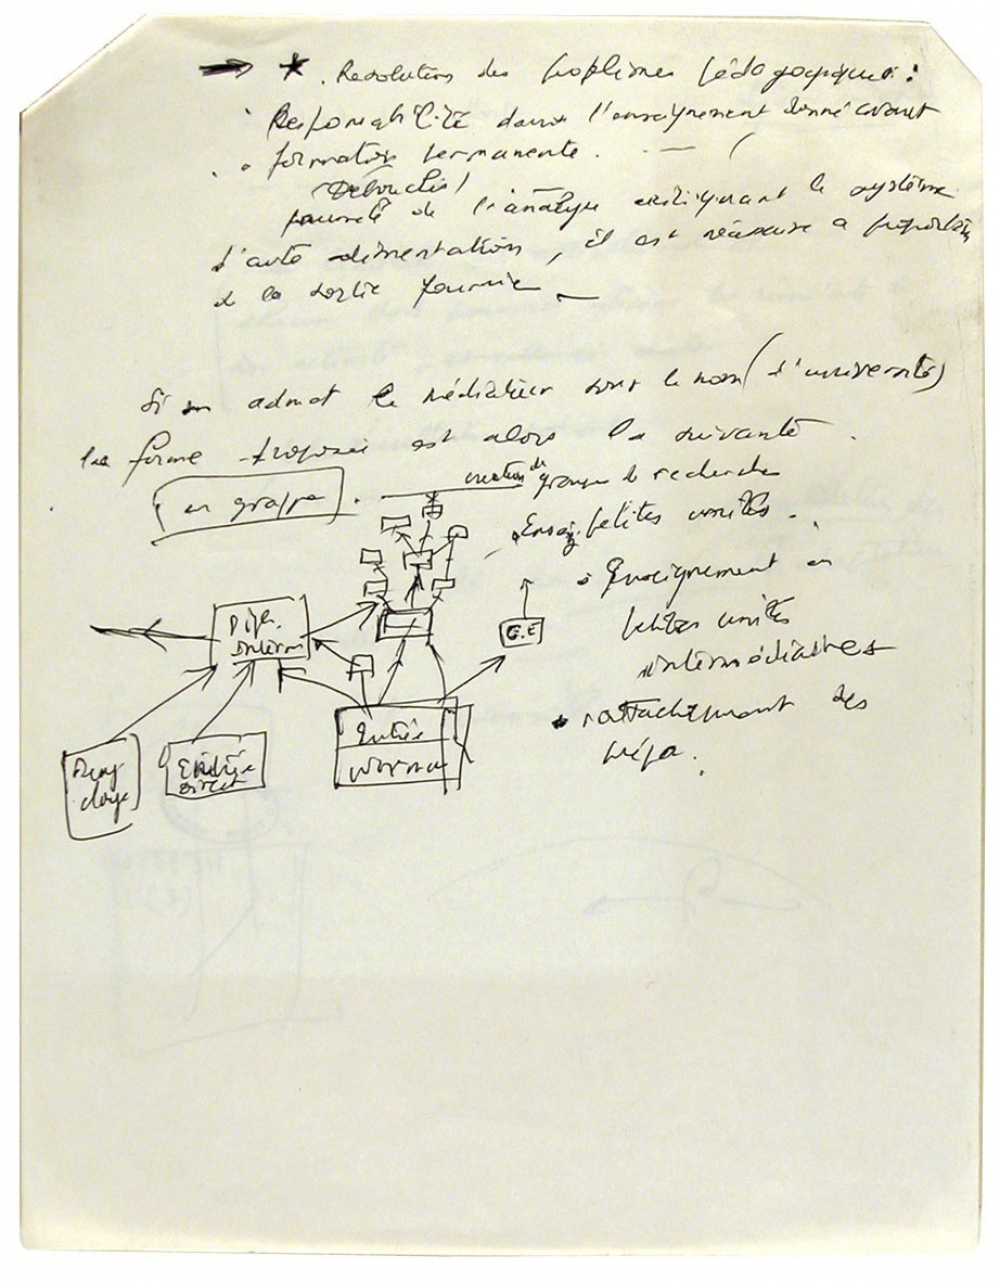 Resolution des problèmes pédagogiques :
Responsabilité dans l'enseignement donné avant
formation permanente.
Débouchés
de l'analyse critiquant le système
d'auto alimentation, il est nécessaire a
de la sortie fournie
Si on admet le médiateur sous le nom (d'université)
la forme proposée est alors la suivante
en grappe.
création de groupes de recherche
Enseig. petites unités.
Enseignement en
petites unités
intermédiaires
rattachement des
C.E
Entrée
directe
Entrée
normale